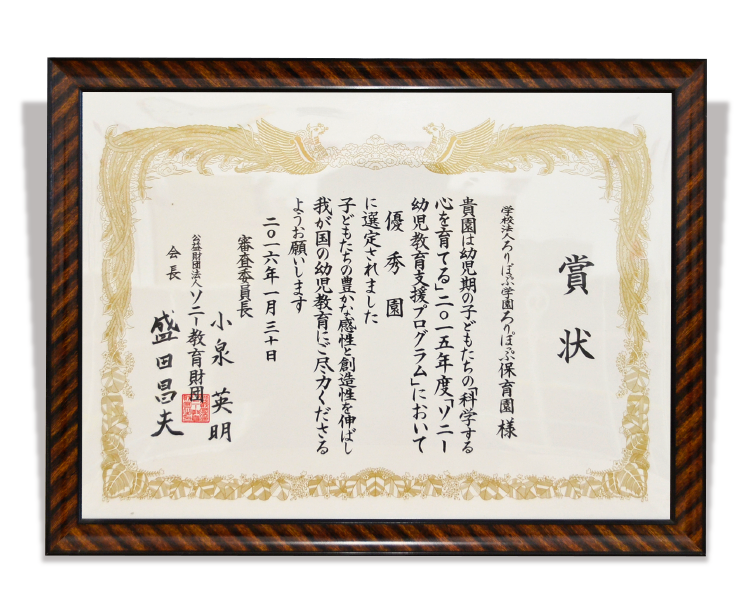 賞状
学校法人ろりぽっぷ学園ろりぽっぷ保育園様
貴園は幼児期の子どもたちの「科学する
心を育てる」二〇一五年度「ソニー
幼児教育支援プログラム」において
優秀園
に選定されました
子どもたちの豊かな感性と創造性を伸ばし
我が国の幼児教育にご尽力くださる
ようお願いします
二〇一六年一月三十日
審査委員長
小泉英明
公益財団法人ソニー教育財団
会長
盛田昌夫